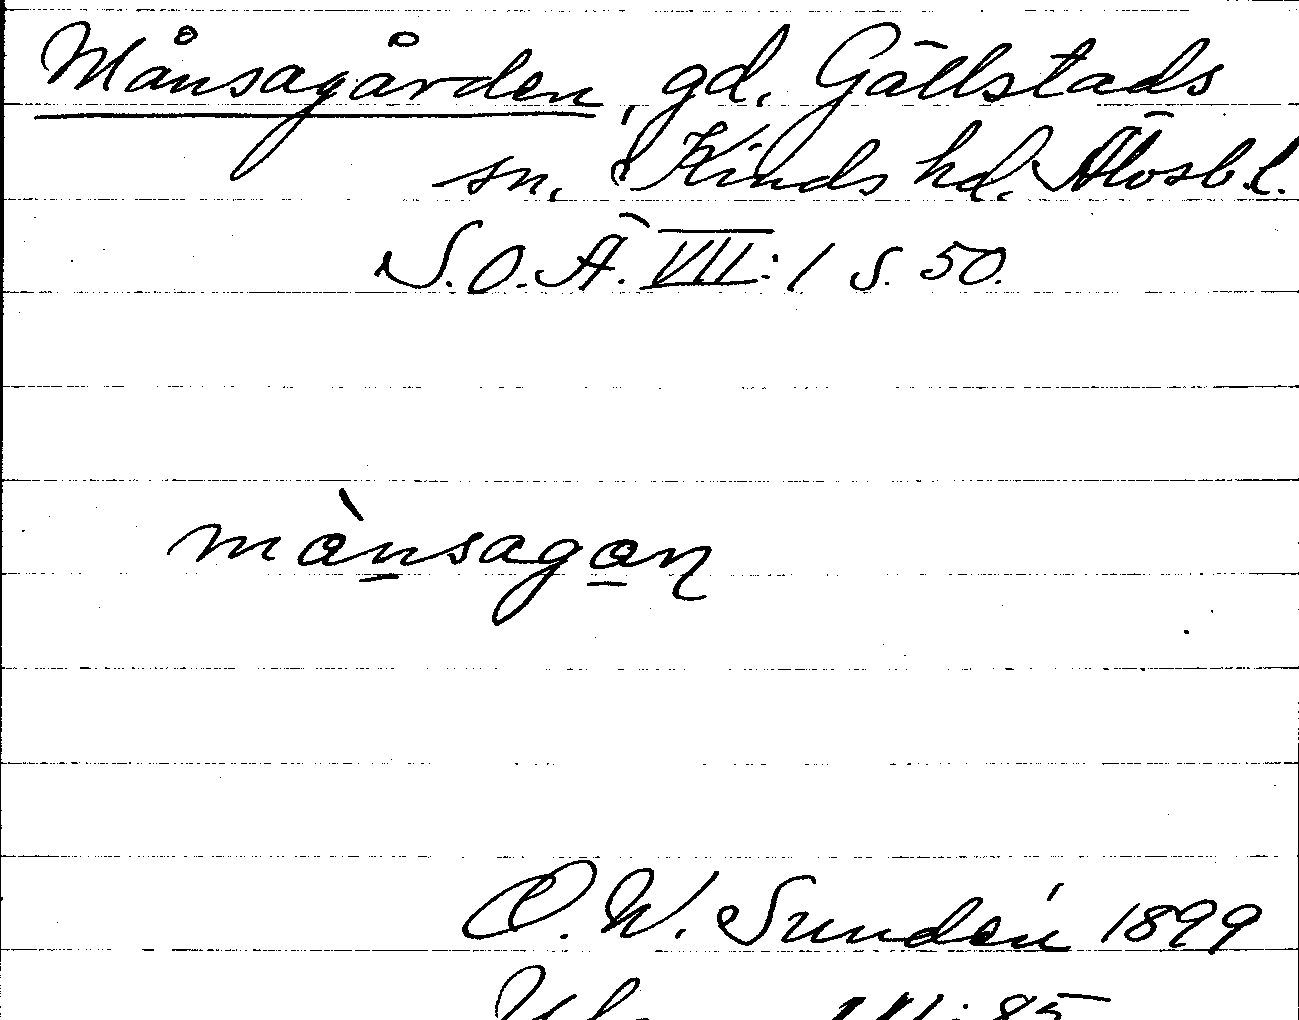 Månsagården, gd. Gällstads
sn, Kinds hd. Älvsb.l.
S.O.Ä. VII:1 S. 50.
mànsagan
O.W. Sundén 1899
:85